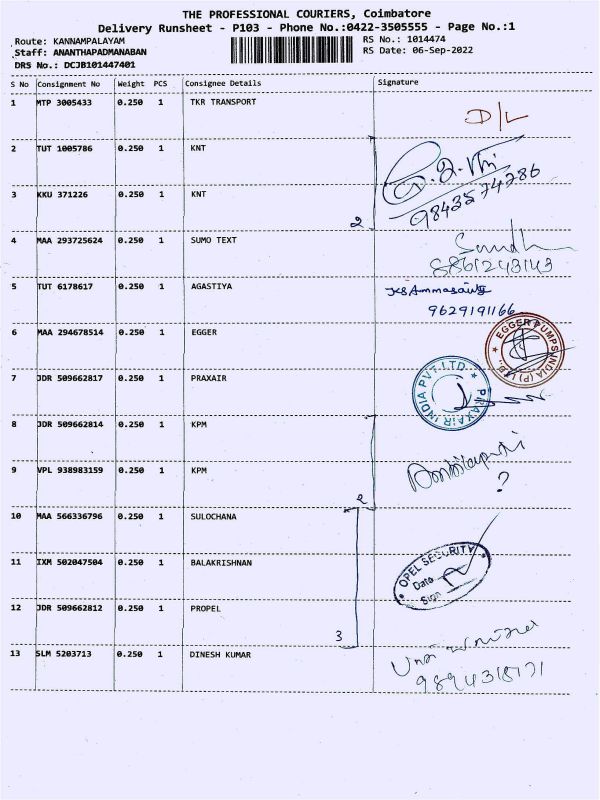 THE PROFESSIONAL COURIERS, Coimbatore
Delivery Runsheet - P103 - Phone No.:0422-3505555 - Page No.:1
Route: KANNAMPALAYAM
RS No.: 1014474
Staff: ANANTHAPADMANABAN
RS Date: 06-Sep-2022
DRS No.: DCJB101447401
S No Consignment No Weight PCS Consignee Details Signature
1 MTP 3005433 0.250 1 TKR TRANSPORT
D/L
2 TUT 1005786 0.250 1 KNT
9843574786
3 KKU 371226 0.250 1 KNT
2
4 MAA 293725624 0.250 1 SUMO TEXT
8861243143
5 TUT 6178617 0.250 1 AGASTIYA
9629191166
6 MAA 294678514 0.250 1 EGGER
EGGER PUMPS INDIA (P) LTD.,
7 JDR 509662817 0.250 1 PRAXAIR
PRAXAIR INDIA PVT.LTD.
8 JDR 509662814 0.250 1 KPM
9 VPL 938983159 0.250 1 KPM
?
2
10 MAA 566336796 0.250 1 SULOCHANA
11 IXM 502047504 0.250 1 BALAKRISHNAN
OPEL SECURITY
Date
Sign
12 JDR 509662812 0.250 1 PROPEL
3
13 SLM 5203713 0.250 1 DINESH KUMAR